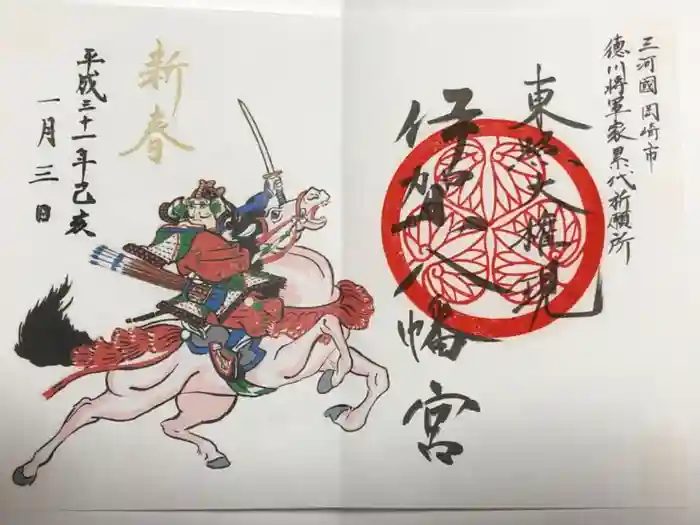 三河國岡崎市
徳川将軍家累代祈願所
東照大権現
伊賀八幡宮
新春
平成三十一年己亥
一月三日